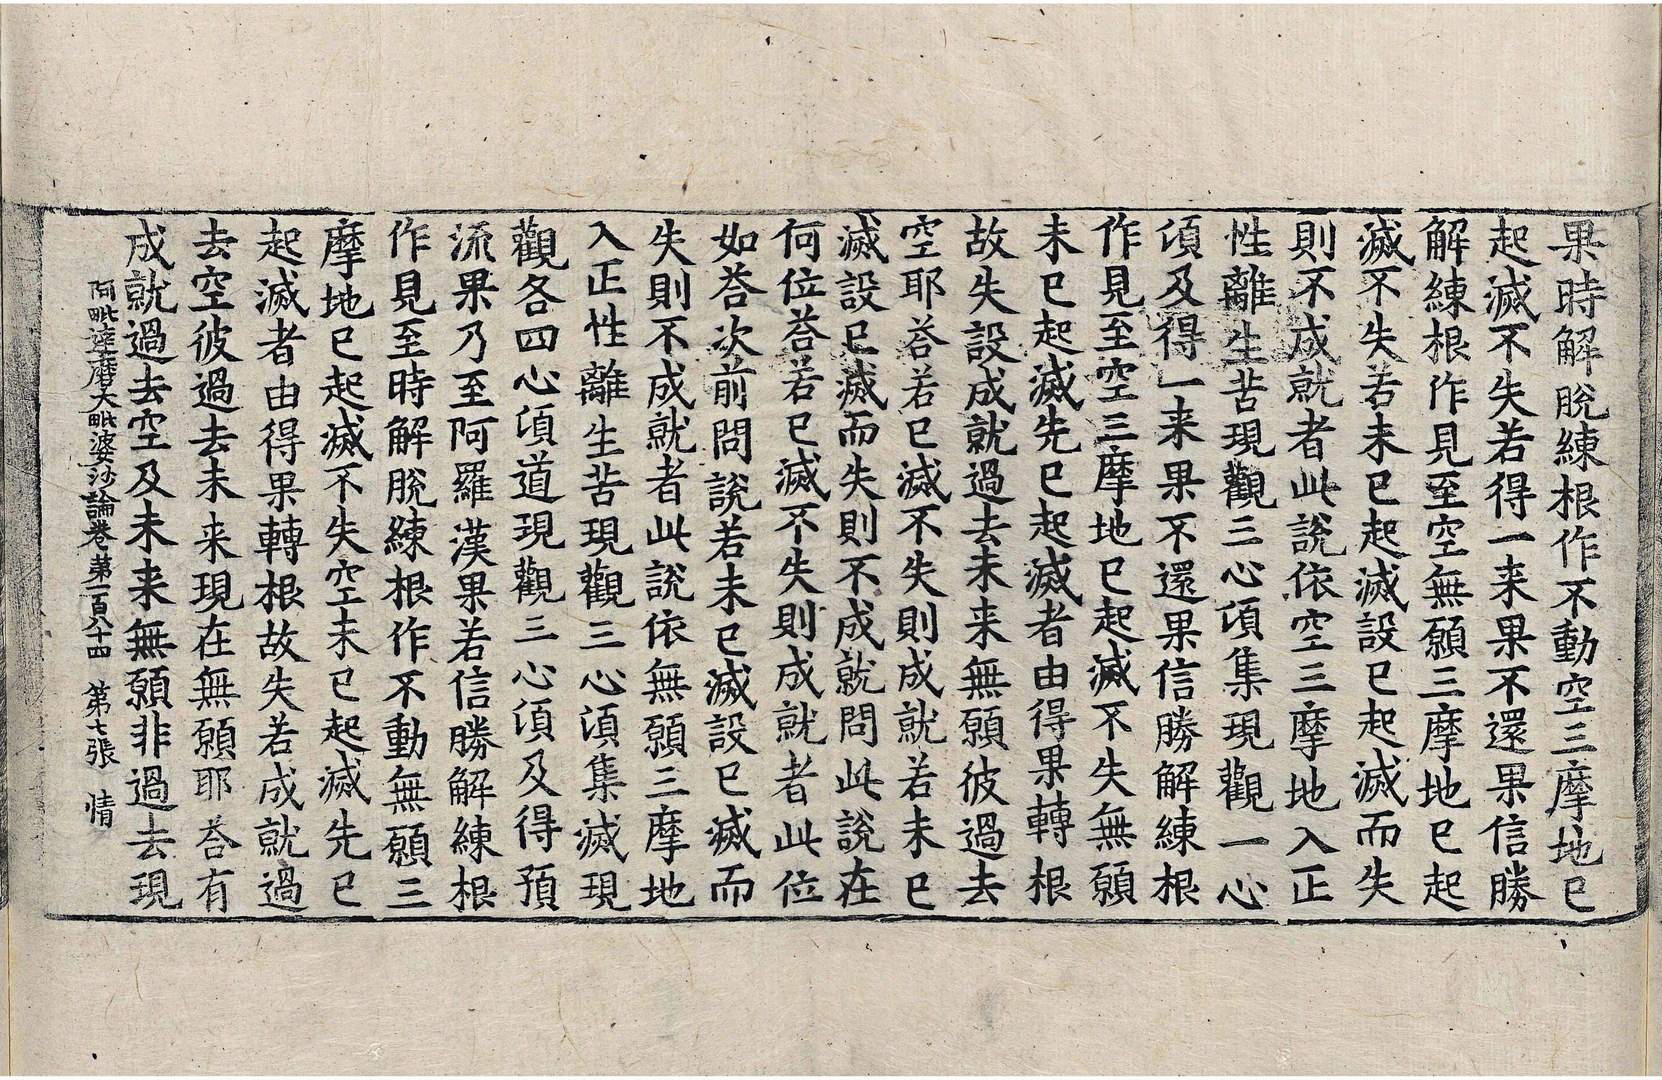 果時解脫練根作不動空三摩地已
起滅不失若得一来果不還果信勝
解練根作見至空無願三摩地已起
滅不失若未已起滅設已起滅而失
則不成就者此說依空三摩地入正
性離生苦現觀三心頃集現觀一心
頃及得一来果不還果信勝解練根
作見至空三摩地已起滅不失無願
未已起滅先已起滅者由得果轉根
故失設成就過去未来無願彼過去
空耶荅若已滅不失則成就若未已
滅設已滅而失則不成就問此說在
何位荅若已滅不失則成就者此位
如荅次前問說若未已滅設已滅而
失則不成就者此說依無願三摩地
入正性離生苦現觀三心頃集滅現
觀各四心頃道現觀三心頃及得預
流果乃至阿羅漢果若信勝解練根
作見至時解脫練根作不動無願三
摩地已起滅不失空未已起滅先已
起滅者由得果轉根故失若成就過
去空彼過去未来現在無願耶荅有
成就過去空及未来無願非過去現
阿毗達磨大毗婆沙論卷第一百八十四 第七張 情